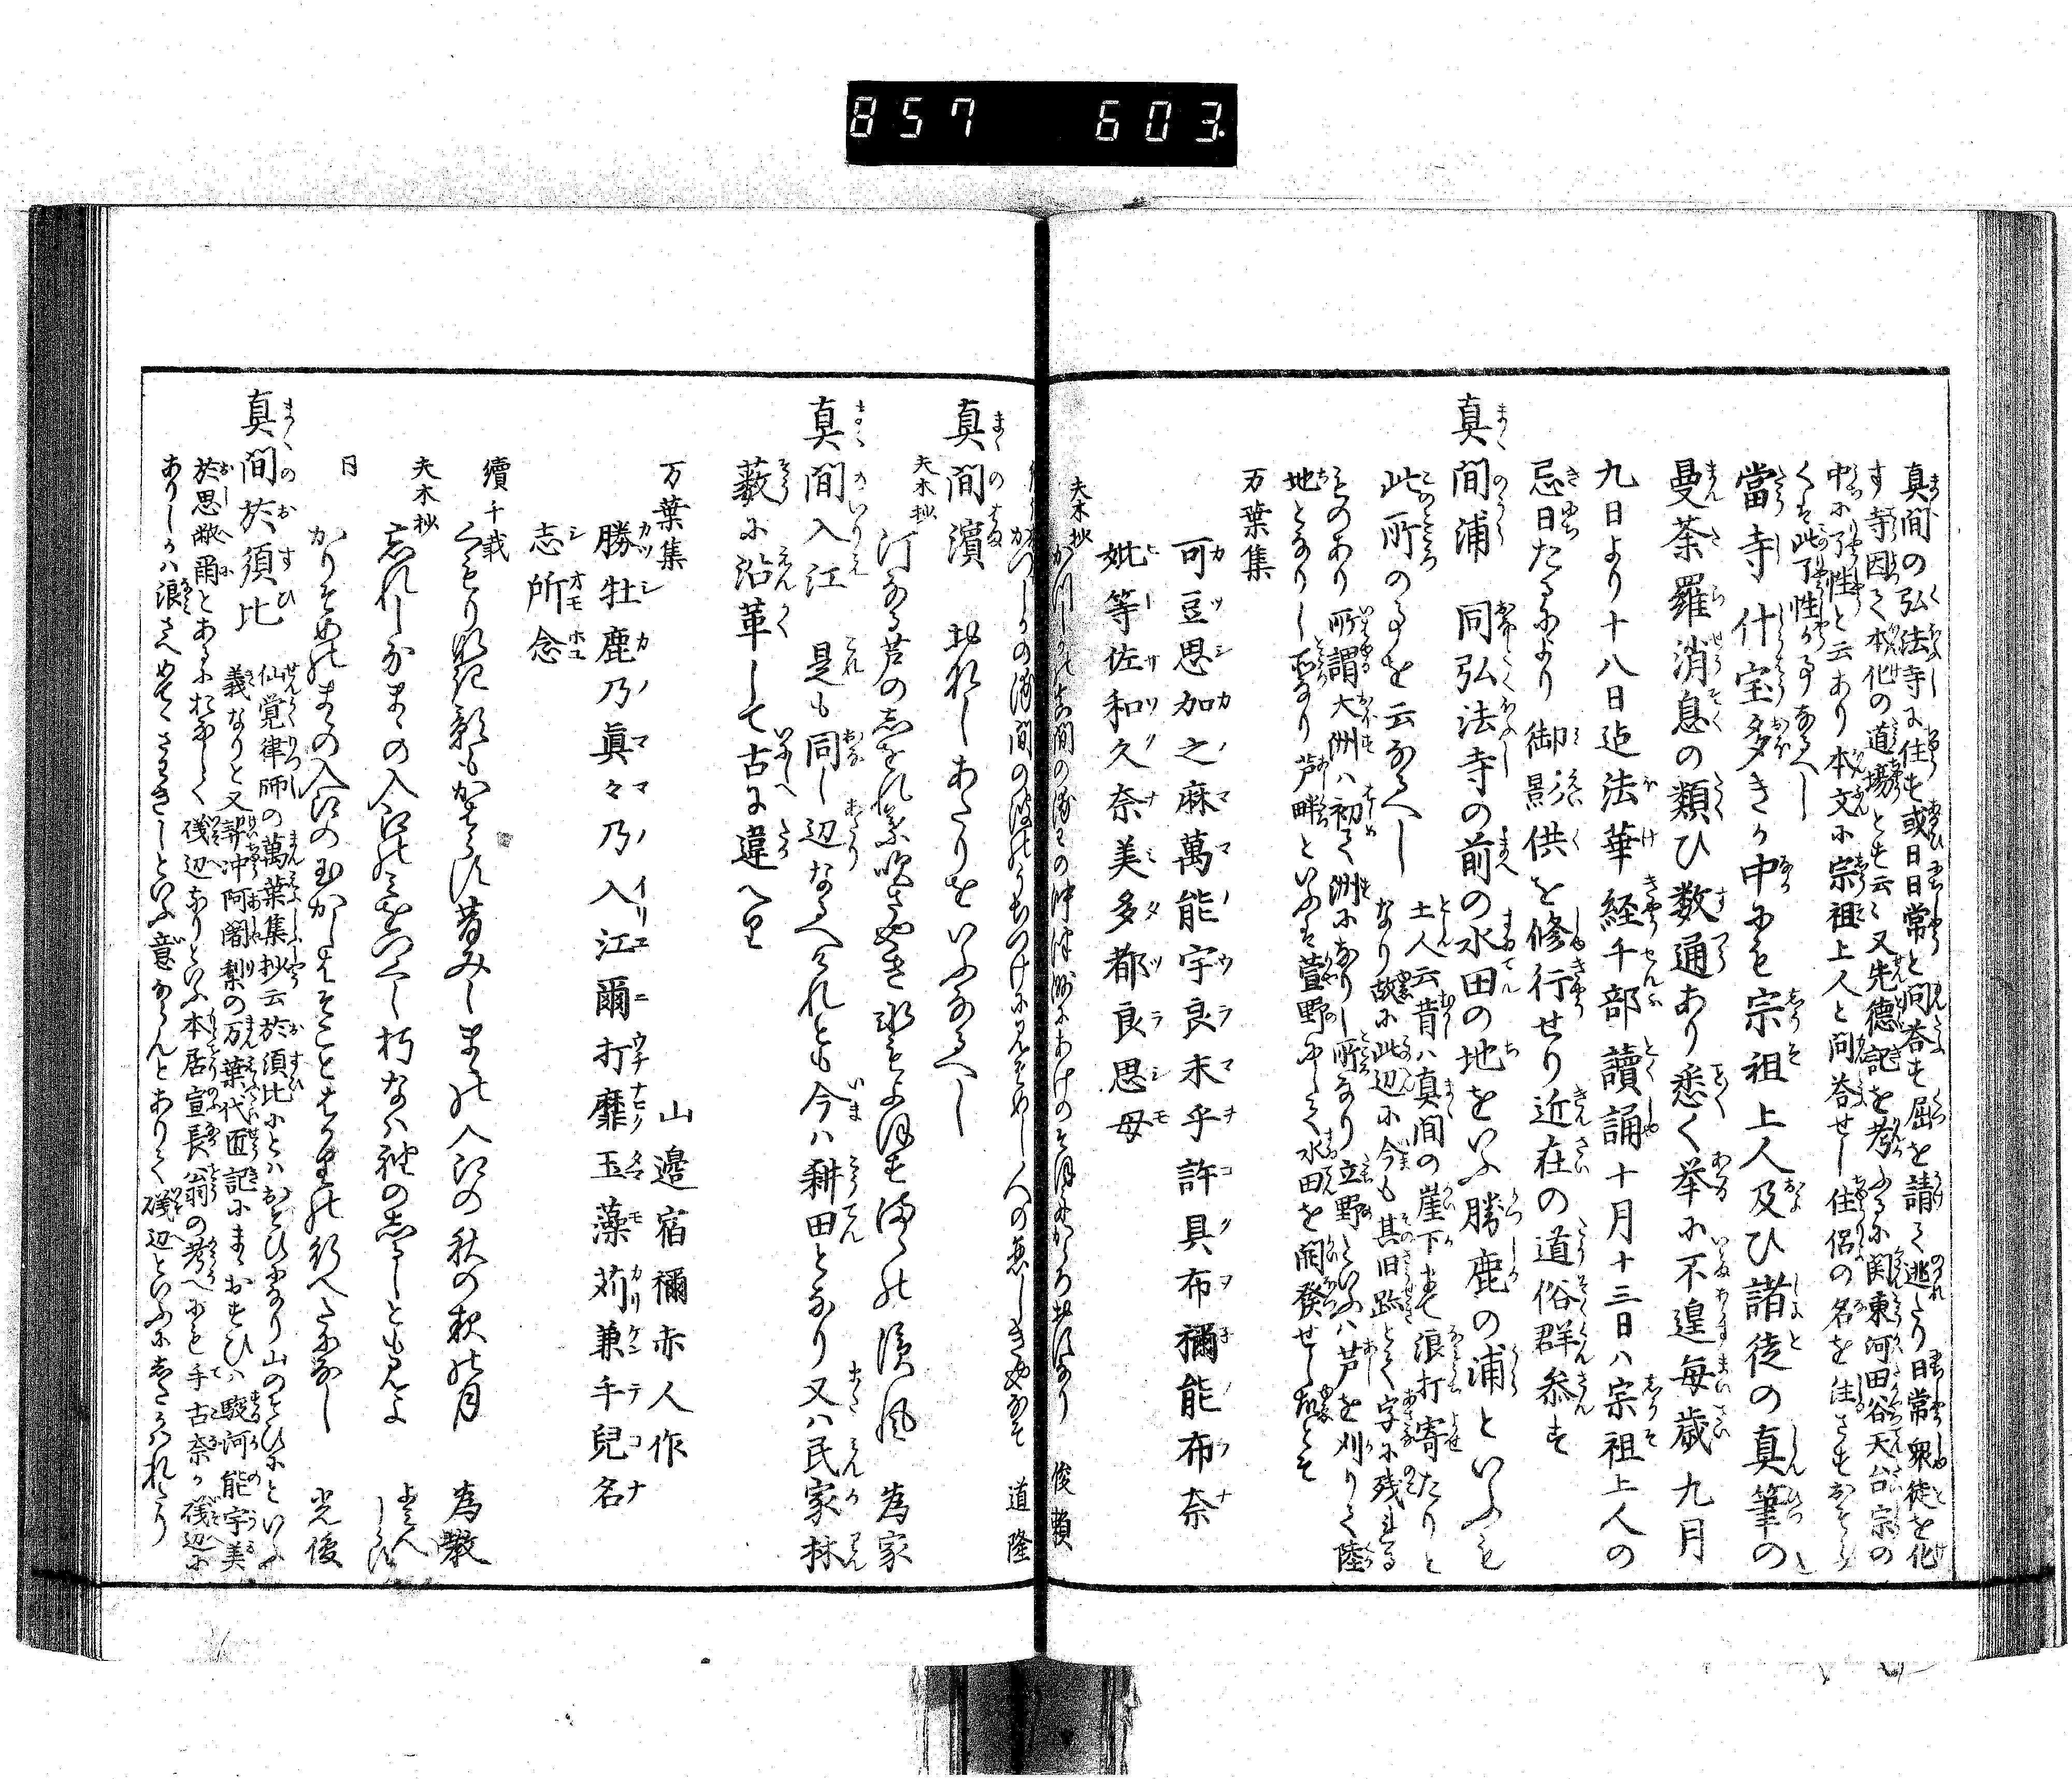 857 603.
真間の弘法寺に住す或日日常と問答す屈を請て逃たり日常衆徒を化
す寺因て本化の道場とすと云々又先徳記を考ふるに関東河田谷天台宗の
中に了性と云あり本文に宗祖上人と問答せし住侶の名を注さす
くは此了性か事なるへし
當寺什宝多きか中にも宗祖上人及ひ諸徒の真筆の
曼荼羅消息の類ひ数通あり悉く挙に不遑毎歳九月
九日より十八日迠法華経千部讀誦十月十三日ハ宗祖上人の
忌日たるにより御影供を修行せり近在の道俗群参す
真間浦 同弘法寺の前の水田の地をいふ勝鹿の浦といふも
此所の事を云なるへし
土人云昔ハ真間の崖下まて浪打寄たりと
なり故に此辺に今も其旧跡とて字に残れる
ものあり所謂大洲ハ初て洲になりし所なり立野といふハ芦を刈りて陸
地となりし所なり芦畔といふは萱野にして水田を開發せし故とそ
万葉集
可豆思加之麻萬能宇良未乎許具布禰能布奈
妣等佐和久奈美多都良思母
夫木抄
かつしかの真間の浦まの沖津洲にあけのそほ舟から 俊頼
かつしかの浦間の波のうちつけに見そめし人の恋しきやなそ 道隆
真間濱 地なしあたりをいふなるへし
夫木抄
汀なる芦のしをれ葉吹さやき氷もよほすままの濱風 為家
真間入江 是も同し辺なるへけれとも今ハ耕田となり又ハ民家林
藪に沿革して古に違へり
万葉集 山邉宿禰赤人作
勝牡鹿乃眞々乃入江爾打靡玉藻苅兼手兒名
志所念
續千載
くもりなき影もかはらす昔みしままの入江の秋の夜の月 為教
夫木抄
忘れしなままの入江のみをつくし朽なハ袖のしるしとも見よ
同
かりそめのままの入江の玉かしは 光俊
真間於須比
仙覚律師の萬葉集抄云於須比にとハおそひになり山のそひにといふ
義なりと又契冲阿闍梨の万葉代匠記にままおすひハ駿河能宇美
於思敝爾とあるにおなしく磯辺なりといふ本居宣長翁の考へにも手古奈か磯辺に
ありしかハ浪さへめてさわきしといふ意ならんとありて磯辺といふにしたかはれたり